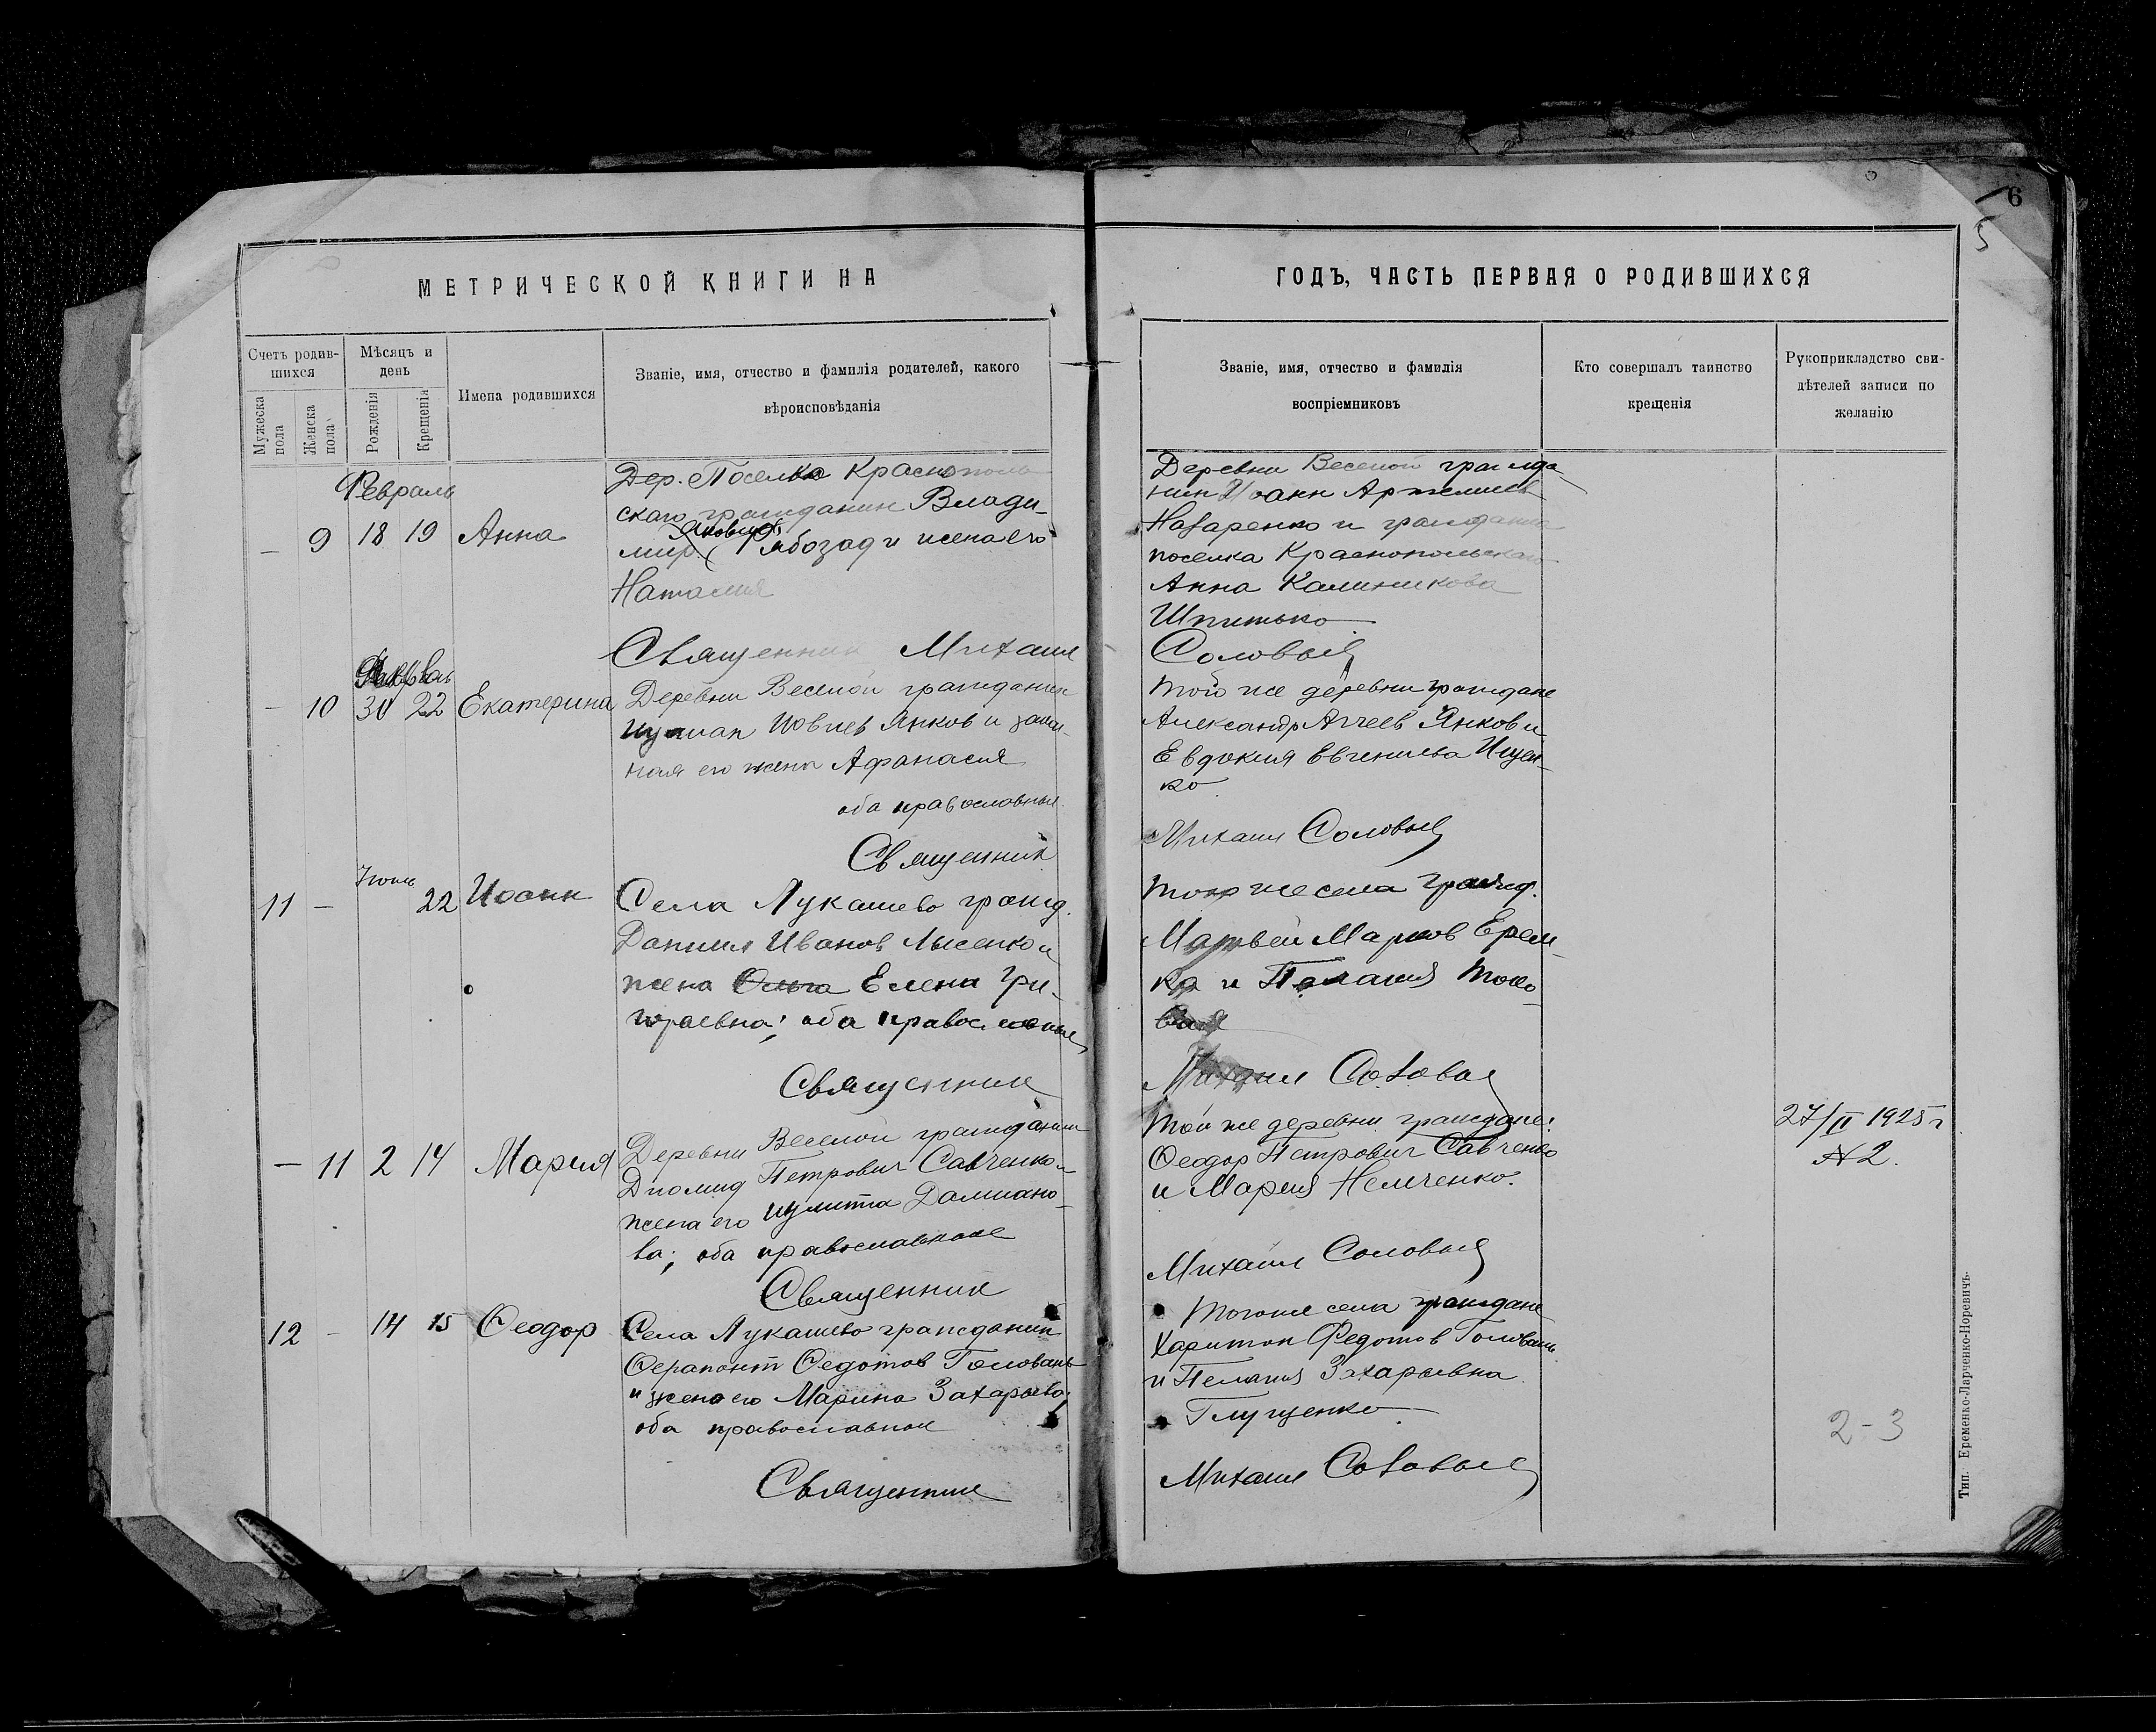 6
5
МЕТРИЧЕСКОЙ КНИГИ НА
ГОДЪ, ЧАСТЬ ПЕРВАЯ О РОДИВШИХСЯ
Счетъ родив-
шихся
Мужеска
пола
Женска
пола
Мѣсяцъ и
день
Рожденія
Крещенія
Имена родившихся
Званіе, имя, отчество и фамилія родителей, какого
вѣроисповѣданія
Званіе, имя, отчество и фамилія
воспріемниковъ
Кто совершалъ таинство
крещенія
Рукоприкладство сви-
дѣтелей записи по
желанію
Февраль
— 9 18 19 Анна
Дер. Поселка Краснополь
скаго гражданин Влади-
мир и жена его
Наталия
Священник Михаил
Деревни Веселой гражда-
нин Иоанн
Назаренко и гражданка
поселка Краснопольскаго
Анна Калиникова
Шпитько
Соловьев
- 10 30 22 Екатерина
Деревни Веселой гражданин
Иовлев Янков и закон-
ная его жена Афанасия
оба православные
Священник
той же деревни граждане
Александр Янков и
Евдокия Евгениева Ищен-
ко
Михаил Соловьев
11 — 22 Иоанн
Села Лукашево гражд.
Даниил Иванов Лысенко и
жена Ольга Елена Гри-
горьевна; оба православные
Священник
того же села гражд.
Матвей Марков Ерем-
ка и Пелагия
Михаил Соловьев
— 11 2 14 Мария
Деревни Веселой гражданин
Диомид Петрович Савченко и
жена его Иулитта Дамиано-
ва; оба православные
Священник
Той же деревни граждане:
Феодор Петрович Савченко
и Мария Немченко.
Михаил Соловьев
27/II 1925 г
№ 2.
12 - 14 15 Феодор
Села Лукашево гражданин
Ферапонт Федотов Головань
и жена его Марина Захарьева;
оба православные
Священник
Того же села граждане
Харитон Федотов Головань
и Пелагия Захарьевна
Глущенко
Михаил Соловьев
2-3
Тип. Еременко-Ларченко-Норевичъ.